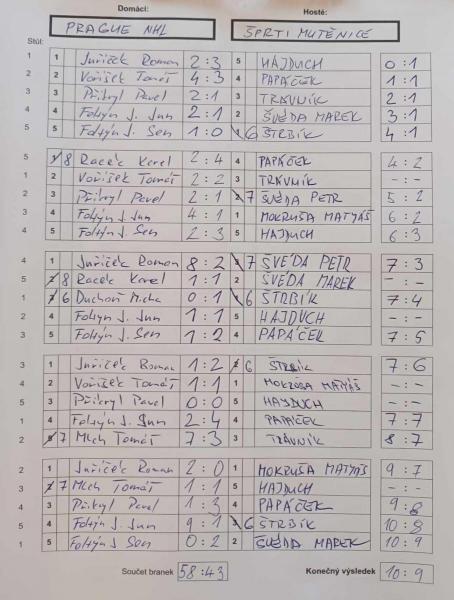 Domácí: Hosté:
PRAGUE NHL ŠPRTI MUTĚNICE
Stůl:
1 1 Juříček Roman 2:3 5 HAJDUCH 0:1
2 2 Voříšek Tomáš 4:3 4 PAPÁČEK 1:1
3 3 Přikryl Pavel 2:1 3 TRÁVNÍK 2:1
4 4 Foltýn J. Jun 2:1 2 ŠVÉDA MAREK 3:1
5 5 Foltýn J. Sen 1:0 6 ŠTRBÍK 4:1
5 8 Racek Karel 2:4 4 PAPÁČEK 4:2
1 2 Voříšek Tomáš 2:2 3 TRÁVNÍK -:-
2 3 Přikryl Pavel 2:1 7 ŠVÉDA PETR 5:2
3 4 Foltýn J. Jun 4:1 1 MOKRUŠA MATYÁŠ 6:2
4 5 Foltýn J. Sen 2:3 5 HAJDUCH 6:3
4 1 Juříček Roman 8:2 7 ŠVÉDA PETR 7:3
5 8 Racek Karel 1:1 2 ŠVÉDA MAREK -:-
1 6 Duchoň Micha 0:1 6 ŠTRBÍK 7:4
2 4 Foltýn J. Jun 1:1 5 HAJDUCH -:-
3 5 Foltýn J. Sen 1:2 4 PAPÁČEK 7:5
3 1 Juříček Roman 1:2 6 ŠTRBÍK 7:6
4 2 Voříšek Tomáš 1:1 1 MOKRUŠA MATYÁŠ -:-
5 3 Přikryl Pavel 0:0 5 HAJDUCH -:-
1 4 Foltýn J. Jun 2:4 4 PAPÁČEK 7:7
2 7 Mlch Tomáš 7:3 3 TRÁVNÍK 8:7
2 1 Juříček Roman 2:0 1 MOKRUŠA MATYÁŠ 9:7
3 7 Mlch Tomáš 1:1 5 HAJDUCH -:-
4 3 Přikryl Pavel 1:3 4 PAPÁČEK 9:8
5 4 Foltýn J. Jun 9:1 6 ŠTRBÍK 10:8
1 5 Foltýn J. Sen 0:2 2 ŠVÉDA MAREK 10:9
Součet branek 58:43 Konečný výsledek 10:9